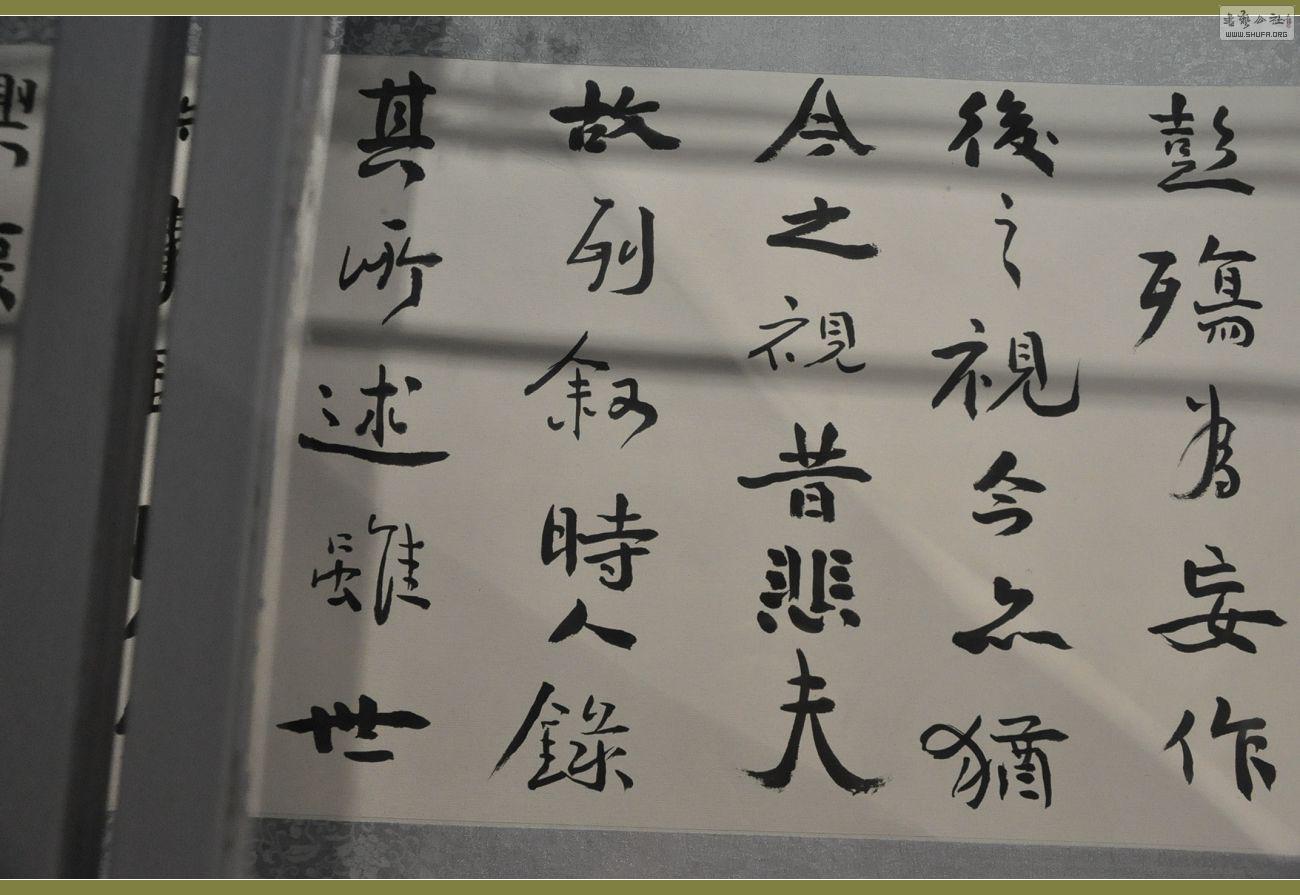 彭殤為妄作
後之視今亦猶
今之視昔悲夫
故列叙時人錄
其所述雖世
興懷
書藝公社
WWW.SHUFA.ORG